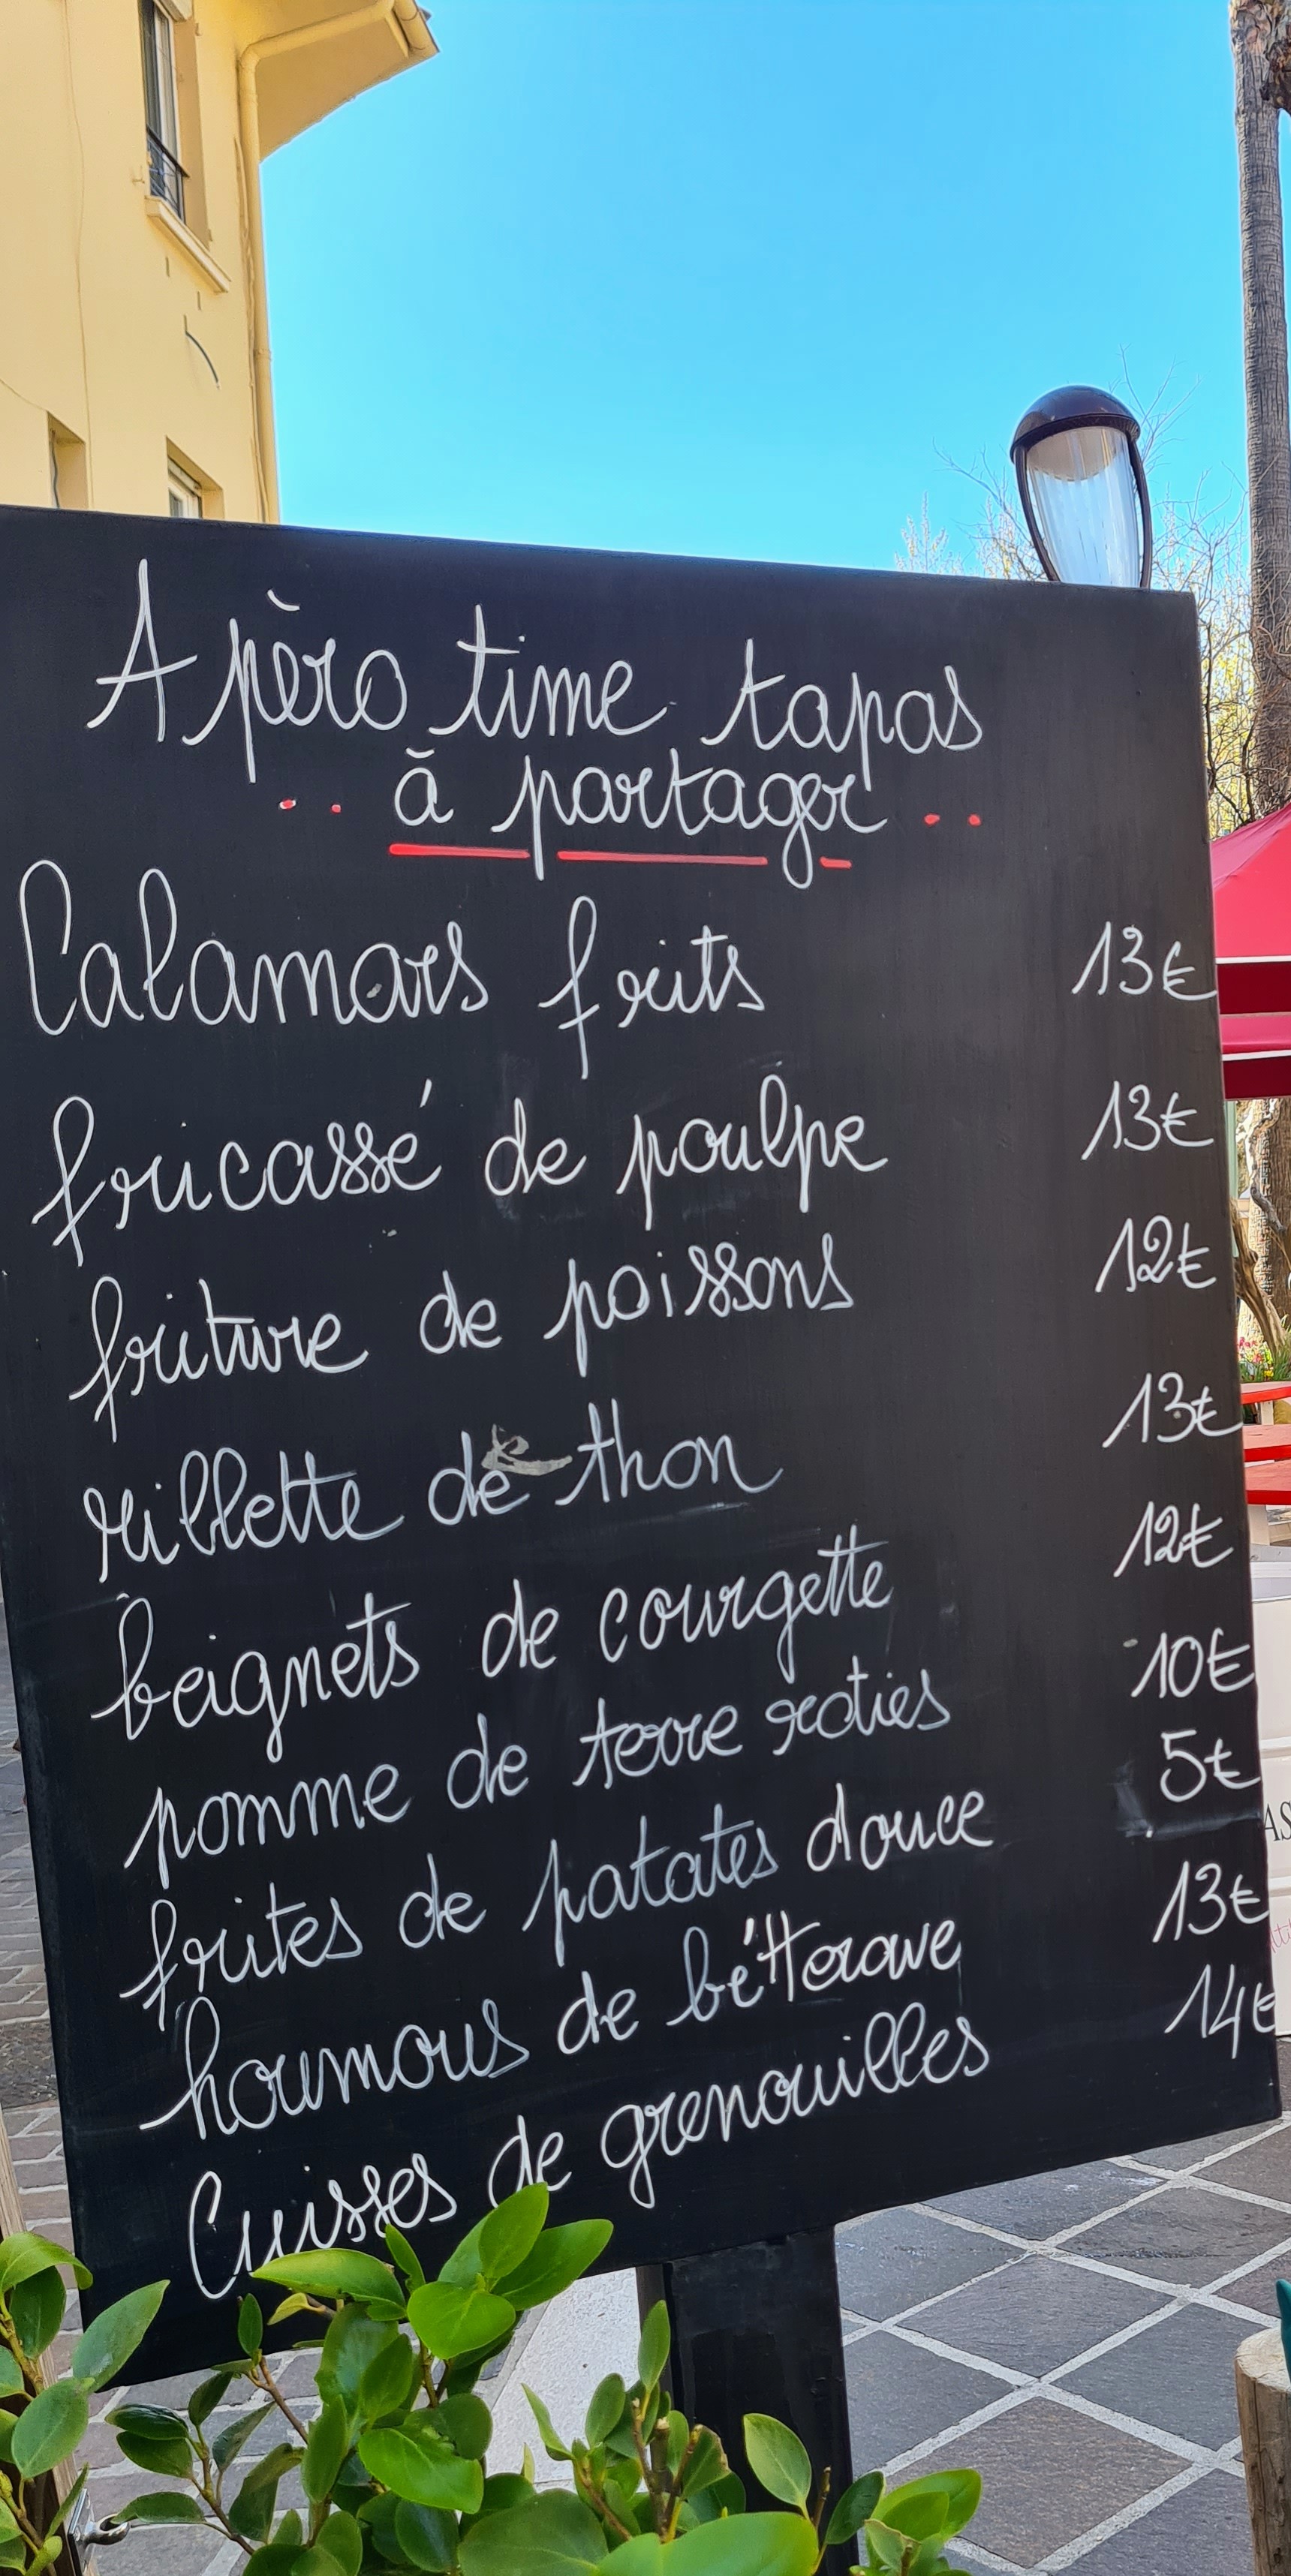 Apèro time tapas
.. à partager ..
Calamars frits 13€
fricassé de poulpe 13€
friture de poissons 12€
rillette de thon 13€
beignets de courgette 12€
pomme de terre roties 10€
frites de patates douce 5€
houmous de bétterave 13€
Cuisses de grenouilles 14€
AS